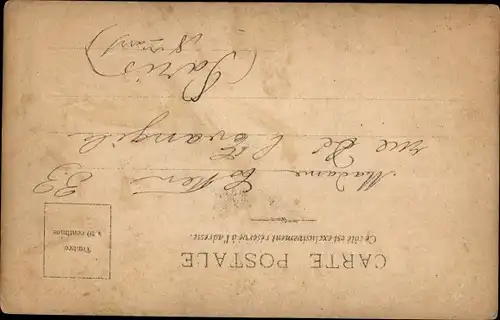 CARTE POSTALE
Ce côté est exclusivement réservé à l'adresse.
Timbre
à 10 centimes
Madame
33
rue de l'Évangile
(Paris)
18